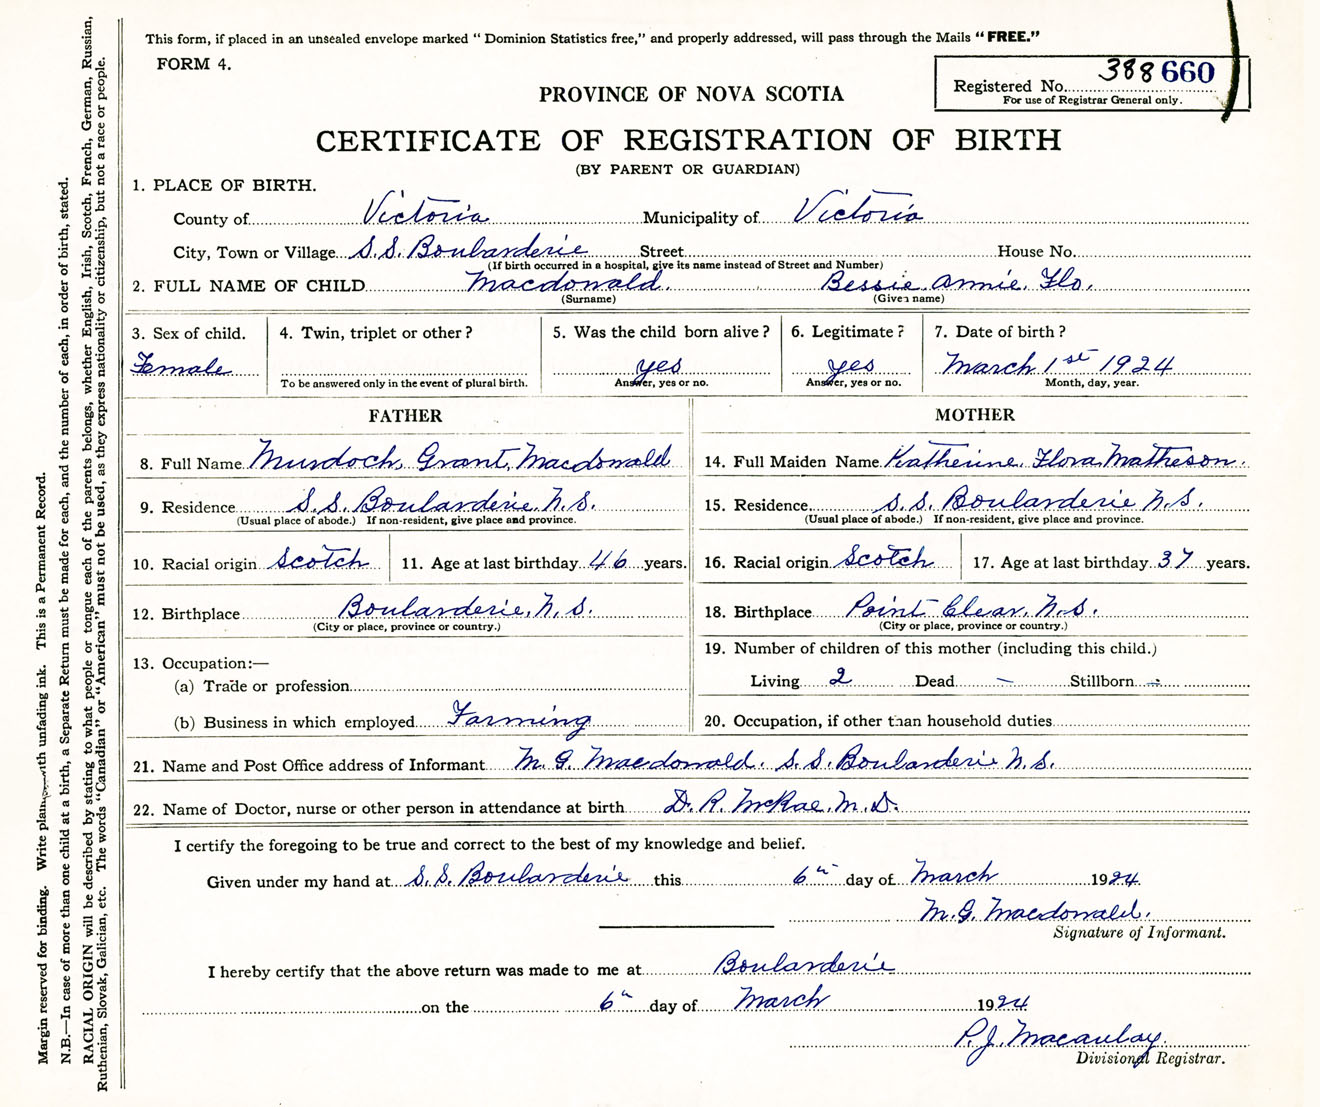 This form, if placed in an unsealed envelope marked “ Dominion Statistics free,” and properly addressed, will pass through the Mails “FREE.”
FORM 4.
Registered No. 388660
For use of Registrar General only.
PROVINCE OF NOVA SCOTIA
CERTIFICATE OF REGISTRATION OF BIRTH
(BY PARENT OR GUARDIAN)
1. PLACE OF BIRTH.
County of Victoria Municipality of Victoria
City, Town or Village S.S. Boularderie Street House No.
(If birth occurred in a hospital, give its name instead of Street and Number)
2. FULL NAME OF CHILD Macdonald. Bessie Annie Flo.
(Surname) (Given name)
3. Sex of child. 4. Twin, triplet or other? 5. Was the child born alive? 6. Legitimate? 7. Date of birth?
Female yes yes March 1st 1924
To be answered only in the event of plural birth. Answer, yes or no. Answer, yes or no. Month, day, year.
FATHER MOTHER
8. Full Name Murdoch Grant Macdonald 14. Full Maiden Name Katherine Flora Matheson.
9. Residence S.S. Boularderie N.S. 15. Residence S.S. Boularderie N.S.
(Usual place of abode.) If non-resident, give place and province. (Usual place of abode.) If non-resident, give place and province.
10. Racial origin Scotch 11. Age at last birthday 46 years. 16. Racial origin Scotch 17. Age at last birthday 37 years.
12. Birthplace Boularderie, N.S. 18. Birthplace Point Clear, N.S.
(City or place, province or country.) (City or place, province or country.)
13. Occupation:— 19. Number of children of this mother (including this child.)
(a) Trade or profession Living 2 Dead – Stillborn –
(b) Business in which employed Farming 20. Occupation, if other than household duties
21. Name and Post Office address of Informant M. G. Macdonald. S.S. Boularderie N.S.
22. Name of Doctor, nurse or other person in attendance at birth D. R. McRae, M.D.
I certify the foregoing to be true and correct to the best of my knowledge and belief.
Given under my hand at S.S. Boularderie this 6th day of March 1924
M. G. Macdonald.
Signature of Informant.
I hereby certify that the above return was made to me at Boularderie
on the 6th day of March 1924
P. J. Macaulay
Divisional Registrar.
Margin reserved for binding. Write plainly with unfading ink. This is a Permanent Record.
N.B.—In case of more than one child at a birth, a Separate Return must be made for each, and the number of each, in order of birth, stated.
RACIAL ORIGIN will be described by stating to what people or tongue each of the parents belongs, whether English, Irish, Scotch, French, German, Russian,
Ruthenian, Slovak, Galician, etc. The words “Canadian” or “American” must not be used, as they express nationality or citizenship, but not a race or people.